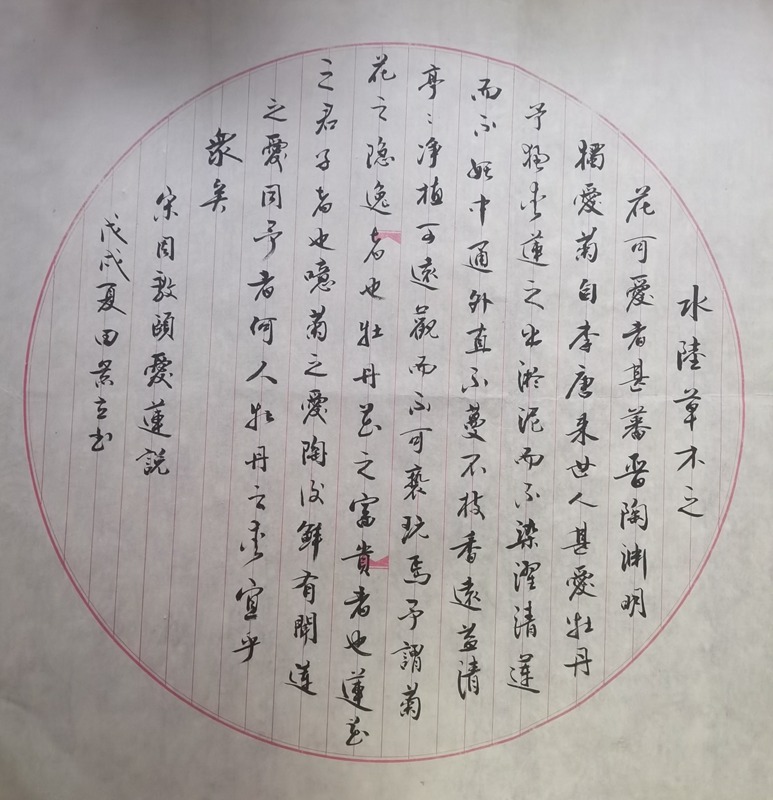 水陸草木之
花可愛者甚蕃晋陶渊明
獨愛菊自李唐来世人甚愛牡丹
予獨愛蓮之出淤泥而不染濯清蓮
而不妖中通外直不蔓不枝香遠益清
亭〻净植可遠觀而不可褻玩焉予謂菊
花之隐逸者也牡丹花之富貴者也蓮花
之君子者也噫菊之愛陶後鮮有聞蓮
之愛同予者何人牡丹之愛宜乎
衆矣
宋周敦頤愛蓮説
戊戌夏田景立书